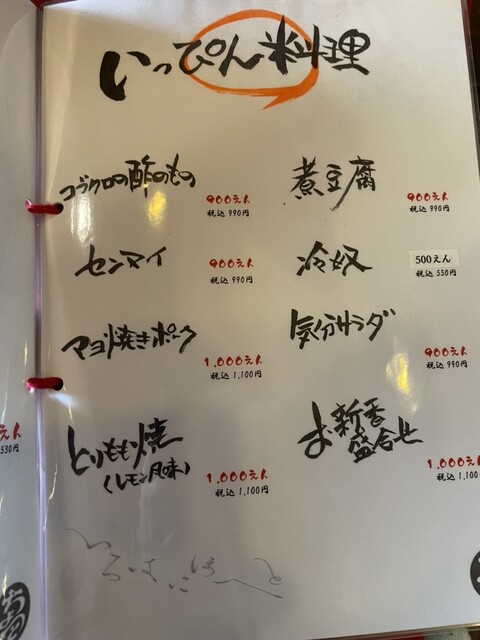 いっぴん料理
コブクロの酢のもの
900えん
税込 990円
センマイ
900えん
税込 990円
マヨ焼きポーク
1.000えん
税込 1,100円
とりもも焼
(レモン風味)
1.000えん
税込 1,100円
煮豆腐
900えん
税込 990円
冷奴
500えん
税込 550円
気分サラダ
900えん
税込 990円
お新香
盛合せ
1.000えん
税込 1,100
いろはにほへと
えん
530円